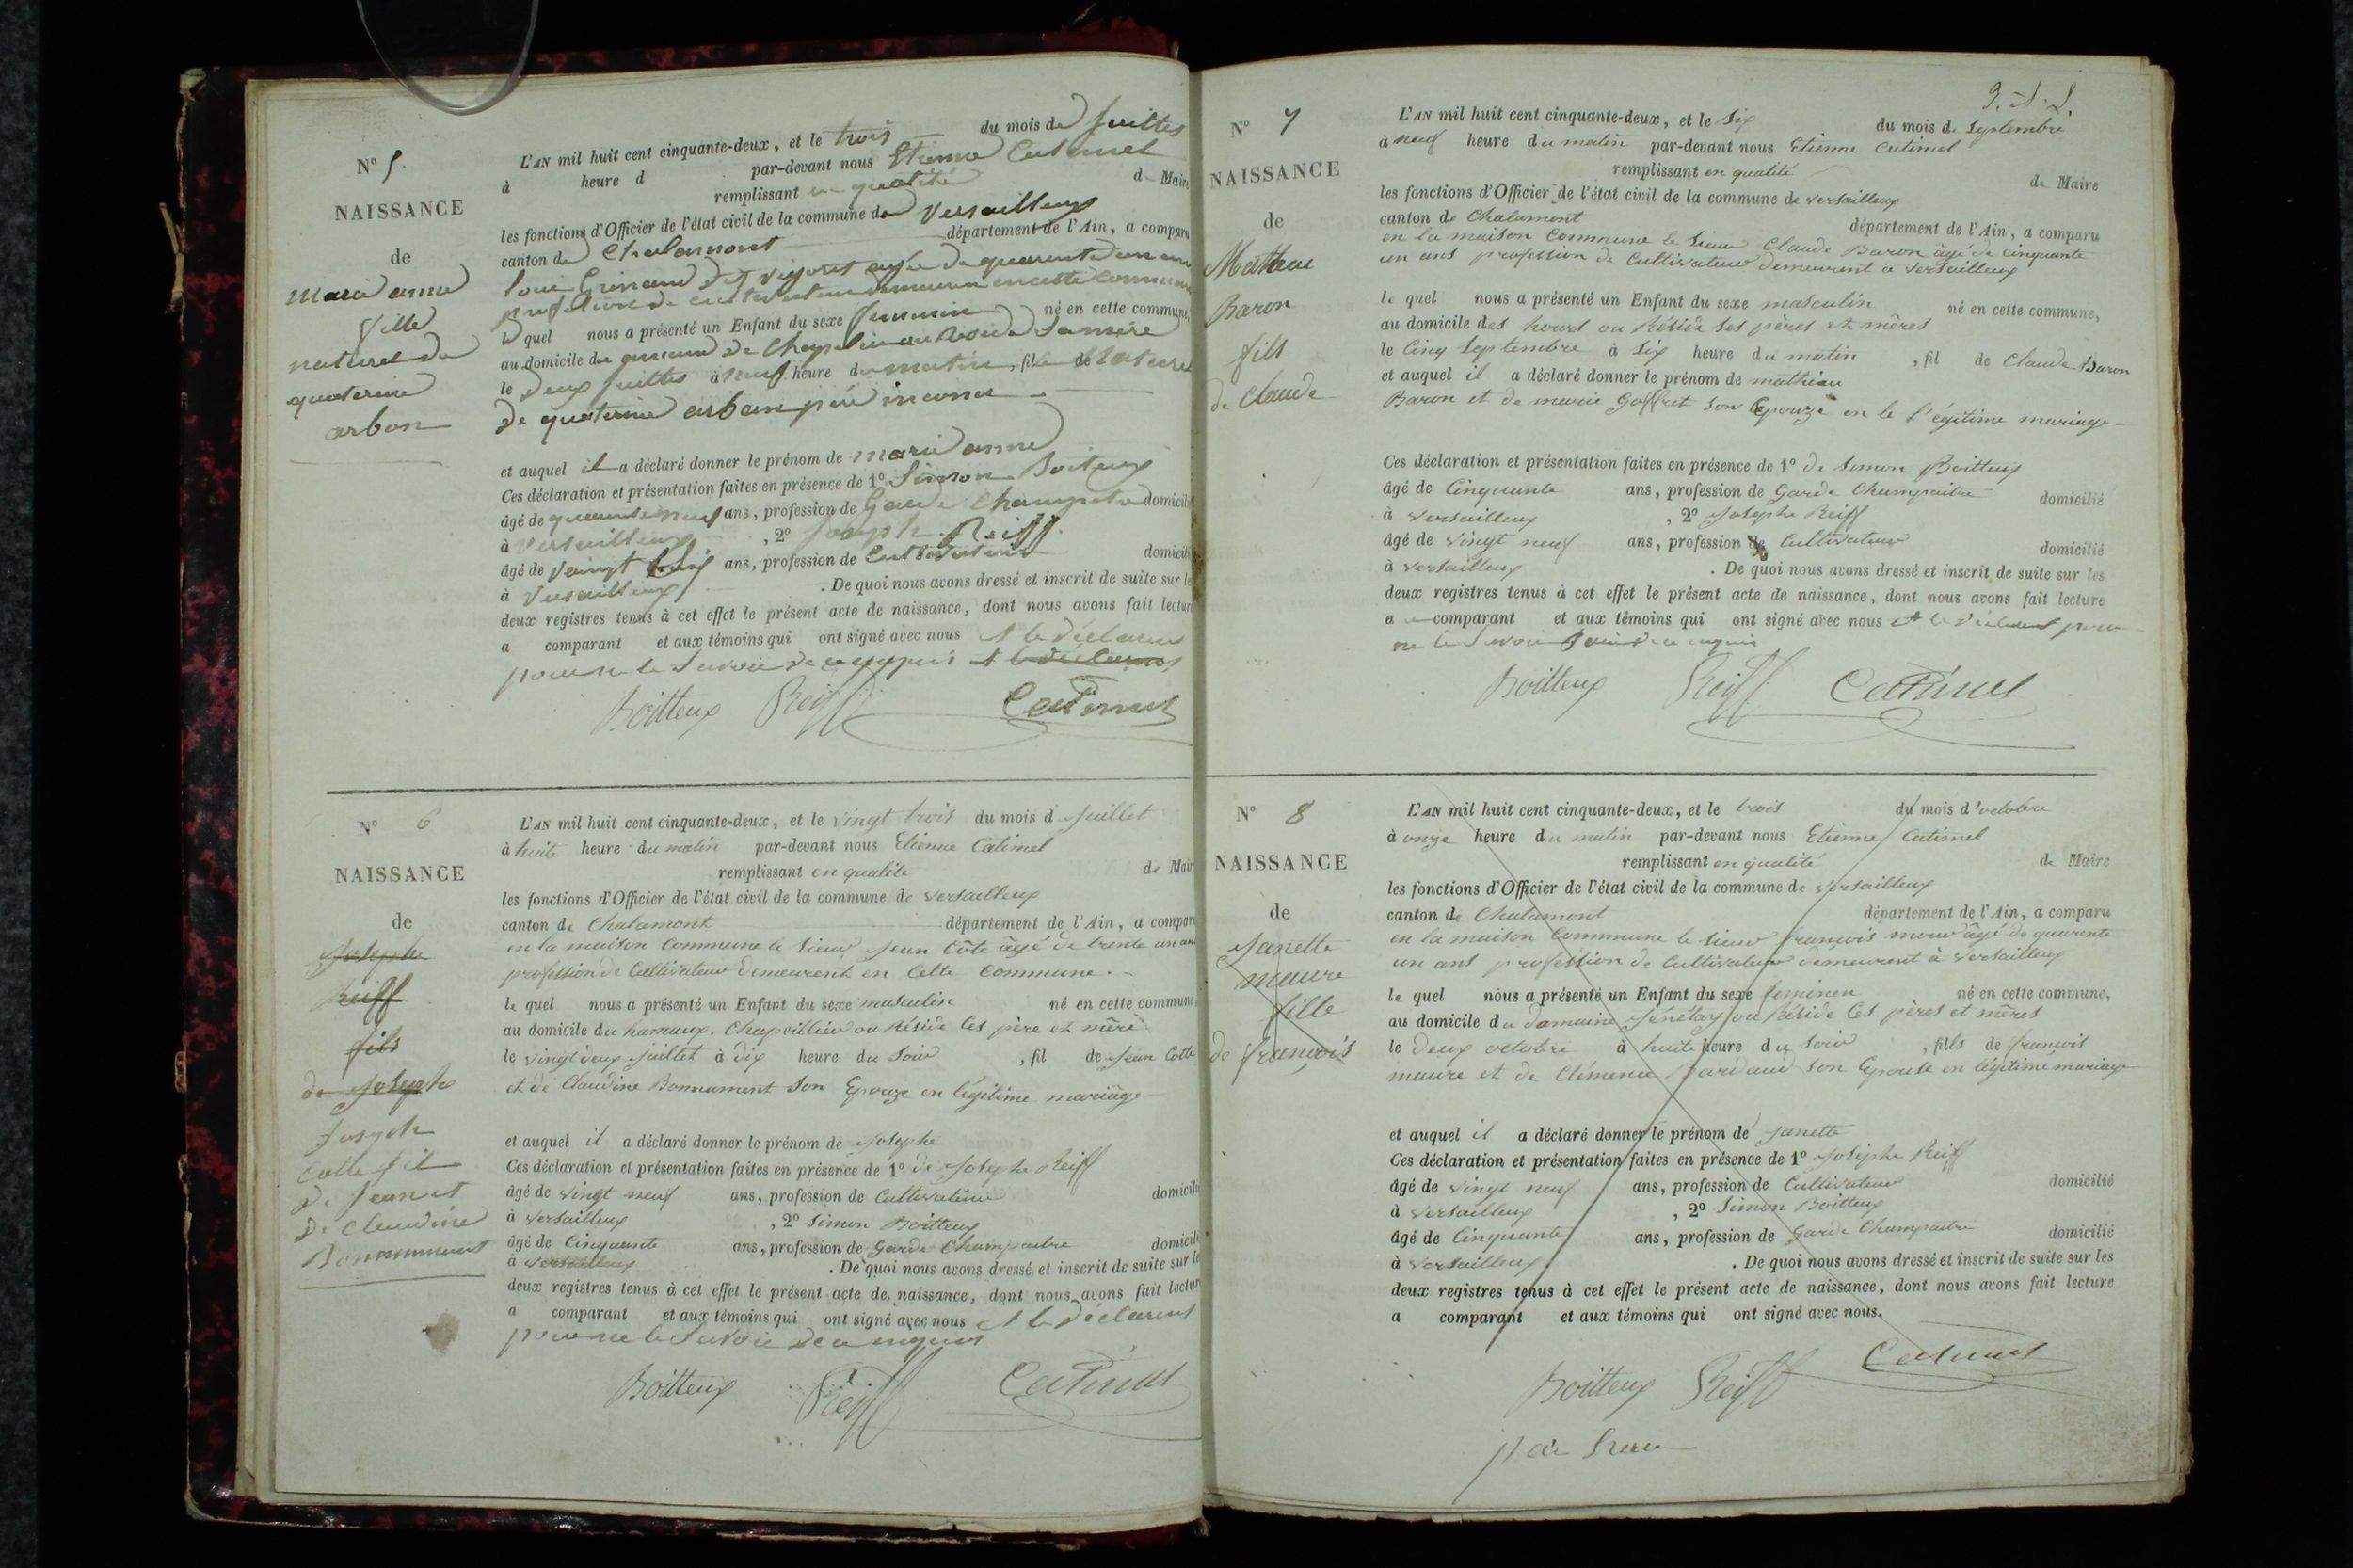 N° 5.
NAISSANCE
de
Marie anne
fille
naturel de
quaterine
arbon
L'AN mil huit cent cinquante-deux, et le trois du mois de juilles
à heure d par-devant nous Etienne Catimel
remplissant en qualité de Maire
les fonctions d'Officier de l'état civil de la commune de Versailleux
canton de Chalamont département de l'Ain, a comparu
agée de quarente un an
profession de cultivateur demeuren en cette commune
le quel nous a présenté un Enfant du sexe feminin né en cette commune,
au domicile de sa mère
le deux juilles à neuf heure du matin, fille de naturel
de quaterine arban père inconnu
et auquel il a déclaré donner le prénom de marie anne
Ces déclaration et présentation faites en présence de 1° Simon Boiteux
âgé de quarente neuf ans, profession de Garde Champetre domicilié
à Versailleux, 2° Joseph Reiff
âgé de vaingt neuf ans, profession de Cultivateur domicilié
à Versailleux. De quoi nous avons dressé et inscrit de suite sur les
deux registres tenus à cet effet le présent acte de naissance, dont nous avons fait lecture
a comparant et aux témoins qui ont signé avec nous et le déclarent
pour ne le savoir de ce enquis et le déclarent
Boitteux Reiff Catimel
N° 6
NAISSANCE
de
Josephe
Reiff
fils
de Josephe
Joseph
Cotte fil
de Jean et
de Claudine
Bonnument
L'AN mil huit cent cinquante-deux, et le vingt trois du mois d Juillet
à huite heure du matin par-devant nous Etienne Catimel
remplissant en qualité de Maire
les fonctions d'Officier de l'état civil de la commune de Versailleux
canton de Chalamont département de l'Ain, a comparu
en la maison Commune le Sieur Jean Côte âgé de trente un ans
profession de Cultivateur demeurent en Cette Commune.
le quel nous a présenté un Enfant du sexe masculin né en cette commune,
au domicile du hamaux. Chapeillieu ou Réside les père et mère
le vingt deux Juillet à dix heure du Soir, fil de Jean Cotte
et de Claudine Bonnument Son Epouze en légitime mariage
et auquel il a déclaré donner le prénom de Josephe
Ces déclaration et présentation faites en présence de 1° de Josephe Reiff
âgé de vingt neuf ans, profession de Cultivateur domicilié
à Versailleux, 2° Simon Boitteux
âgé de Cinquante ans, profession de Garde Champaitre domicilié
à Versailleux. De quoi nous avons dressé et inscrit de suite sur les
deux registres tenus à cet effet le présent acte de naissance, dont nous avons fait lecture
a comparant et aux témoins qui ont signé avec nous et le déclarent
pour ne le savoir de ce enquis
Boitteux Reiff Catimel
N° 7
NAISSANCE
de
Mathieu
Baron
fils
de Claude
L'AN mil huit cent cinquante-deux, et le Six du mois de Septembre
à neuf heure du matin par-devant nous Etienne Catimel
remplissant en qualité de Maire
les fonctions d'Officier de l'état civil de la commune de Versailleux
canton de Chalamont département de l'Ain, a comparu
en la maison Commune le Sieur Claude Baron âgé de cinquante
un ans profession de Cultivateur demeurent a Versailleux
le quel nous a présenté un Enfant du sexe masculin né en cette commune,
au domicile des hours ou Réside Ses pères et mères
le Cinq Septembre à Six heure du matin, fil de Claude Baron
et auquel il a déclaré donner le prénom de mathieu
Baron et de marie Goffret Son Epouze en le légitime mariage
Ces déclaration et présentation faites en présence de 1° de Simon Boitteux
âgé de Cinquante ans, profession de Garde Champaitre domicilié
à Versailleux, 2° Josephe Reiff
âgé de vingt neuf ans, profession de Cultivateur domicilié
à Versailleux. De quoi nous avons dressé et inscrit de suite sur les
deux registres tenus à cet effet le présent acte de naissance, dont nous avons fait lecture
a comparant et aux témoins qui ont signé avec nous et le déclarent pour
ne le savoir de ce enquis
Boitteux Reiff Catimel
N° 8
NAISSANCE
de
Janette
maure
fille
de francois
L'AN mil huit cent cinquante-deux, et le trois du mois d'octobre
à onze heure du matin par-devant nous Etienne Catimel
remplissant en qualité de Maire
les fonctions d'Officier de l'état civil de la commune de Versailleux
canton de Chalamont département de l'Ain, a comparu
en la maison Commune le Sieur francois âgé de quarente
un ans profession de Cultivateur demeurent à Versailleux
le quel nous a présenté un Enfant du sexe feminen né en cette commune,
au domicile du domaine Jénétay ou Réside les pères et mères
le deux octobre à huite heure du Soir, fils de francois
maure et de Clémence Son Epouse en légitime mariage
et auquel il a déclaré donner le prénom de Janette
Ces déclaration et présentation faites en présence de 1° Josephe Reiff
âgé de vingt neuf ans, profession de Cultivateur domicilié
à Versailleux, 2° Simon Boitteux
âgé de Cinquante ans, profession de Garde Champaitre domicilié
à Versailleux. De quoi nous avons dressé et inscrit de suite sur les
deux registres tenus à cet effet le présent acte de naissance, dont nous avons fait lecture
a comparant et aux témoins qui ont signé avec nous.
Catimel
Boitteux Reiff